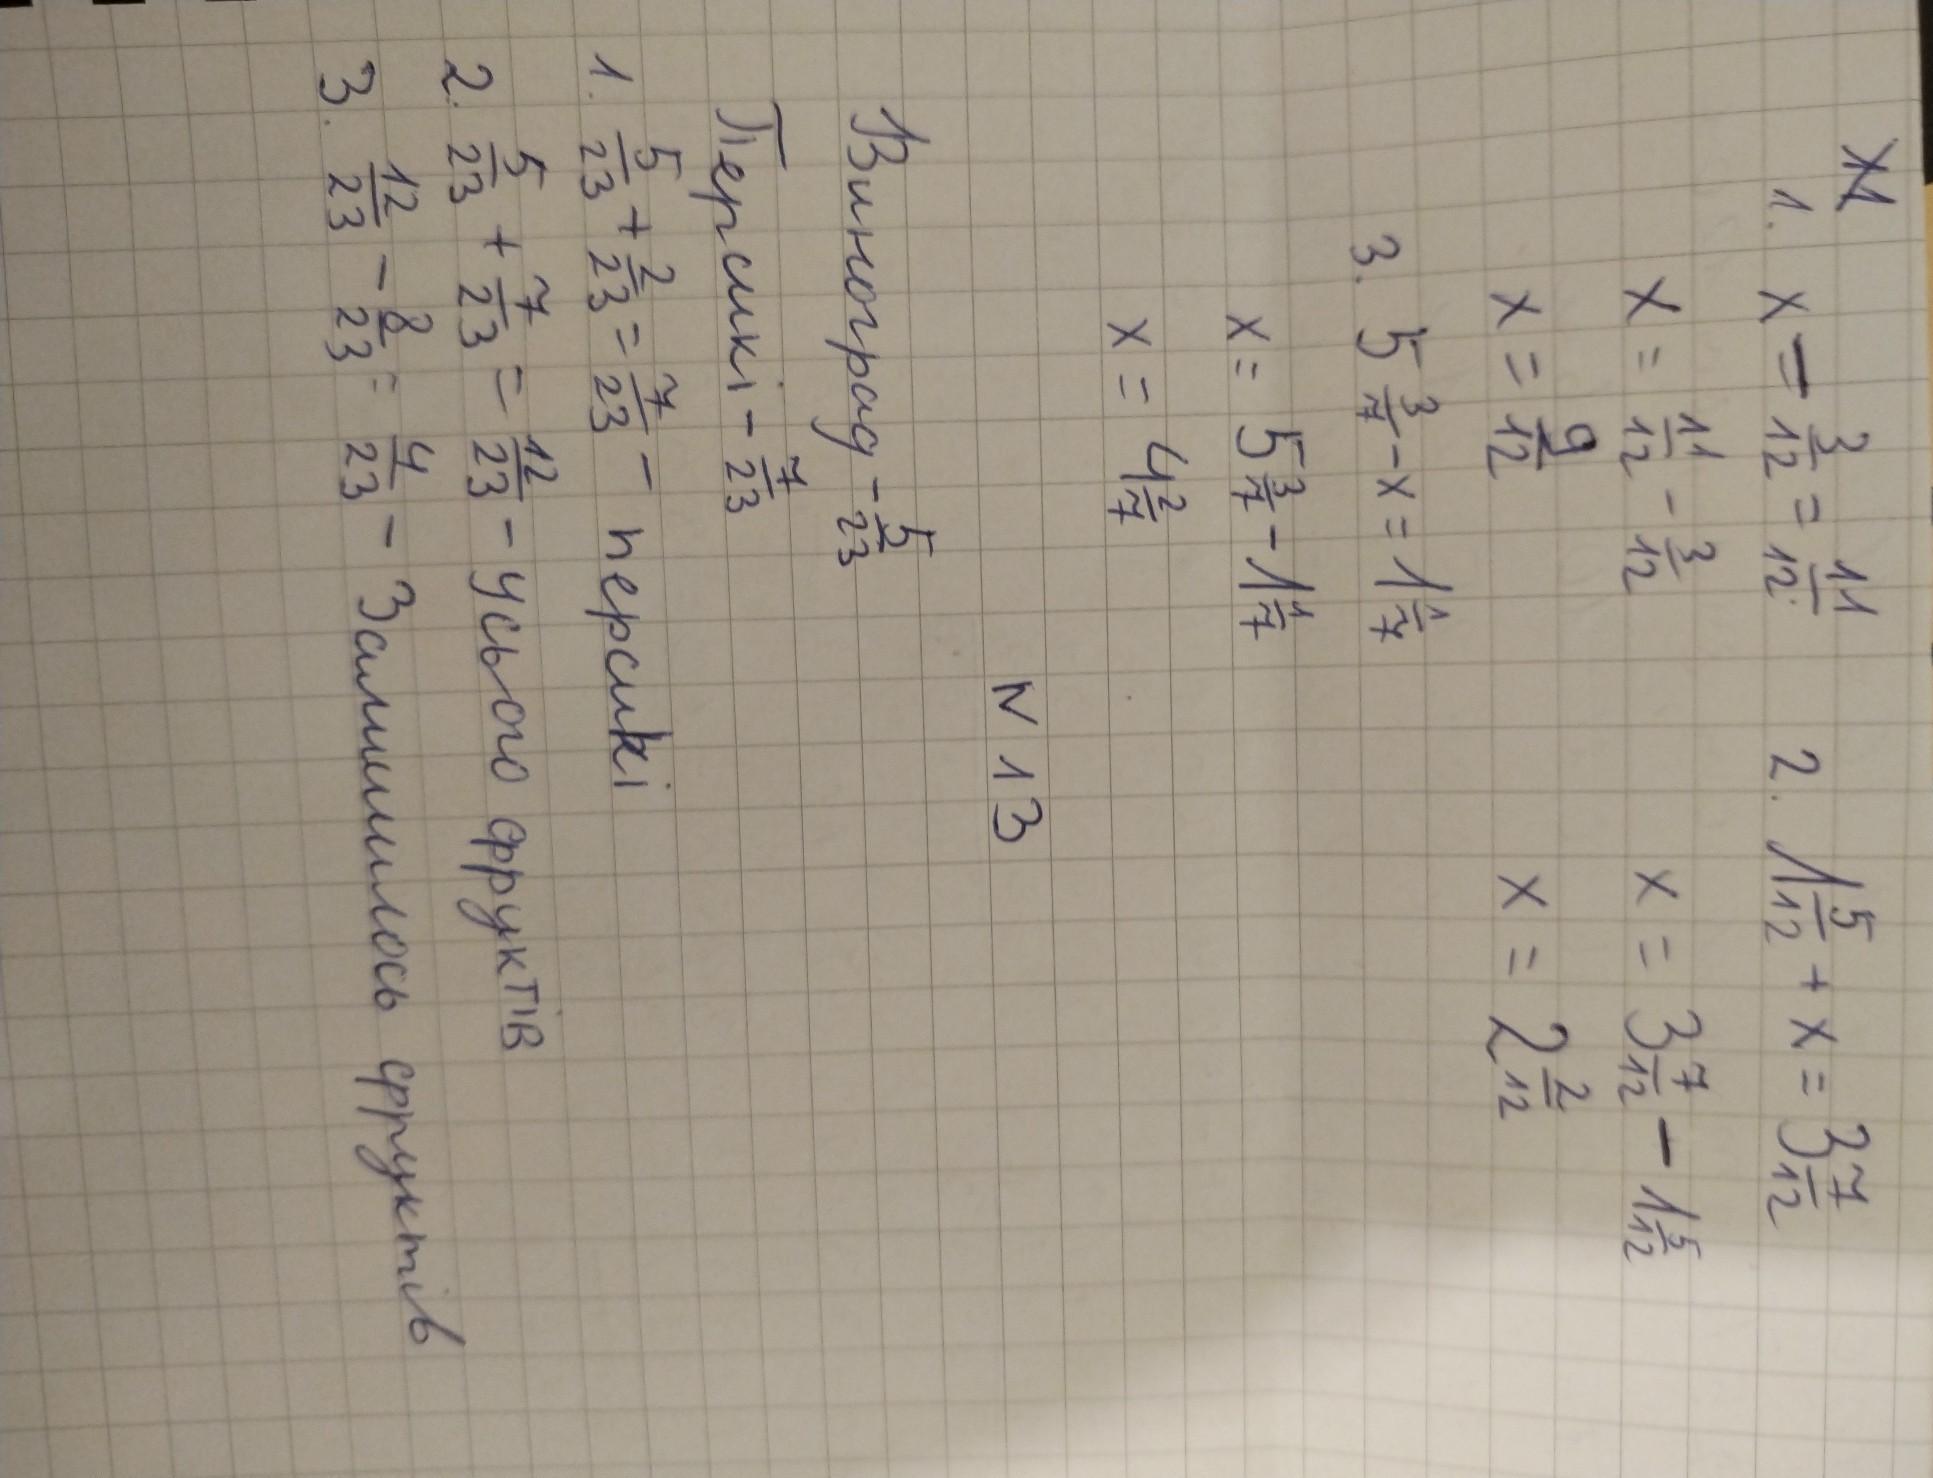 1. x - 3/12 = 11/12 2. 1 5/12 + x = 3 7/12
x = 11/12 - 3/12 x = 3 7/12 - 1 5/12
x = 9/12 x = 2 2/12
3. 5 3/7 - x = 1 1/7
x = 5 3/7 - 1 1/7
x = 4 2/7
N 13
Виноград - 5/23
Персикі - 7/23
1. 5/23 + 2/23 = 7/23 - персикі
2. 5/23 + 7/23 = 12/23 - усього фруктів
3. 12/23 - 8/23 = 4/23 - Залишилось фруктів